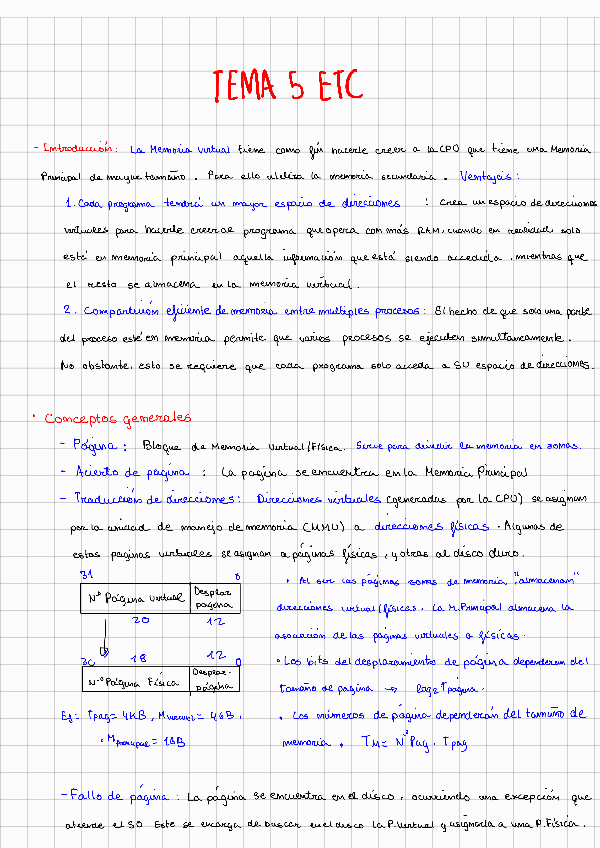 TEMA 5 ETC
- Introducción: La Memoria virtual tiene como fin hacerle creer a la CPU que tiene una Memoria
Principal de mayor tamaño. Para ello utiliza la memoria secundaria. Ventajas:
1. Cada programa tendrá un mayor espacio de direcciones : Crea un espacio de direcciones
virtuales para hacerle creer al programa que opera con más RAM, cuando en realidad solo
está en memoria principal aquella información que está siendo accedida, mientras que
el resto se almacena en la memoria virtual.
2. Compartición eficiente de memoria entre multiples procesos: El hecho de que solo una parte
del proceso esté en memoria permite que varios procesos se ejecuten simultaneamente.
No obstante, esto se requiere que cada programa solo acceda a SU espacio de direcciones.
· Conceptos generales
- Página: Bloque de Memoria Virtual/Física. Sirve para dividir la memoria en zonas.
- Acierto de página : La pagina se encuentra en la Memoria Principal
- Traducción de direcciones: Direcciones virtuales (generadas por la CPU) se asignan
por la unidad de manejo de memoria (MMU) a direcciones físicas. Algunas de
estas paginas virtuales se asignan a páginas físicas, y otras al disco duro.
31 0
Nº Página virtual Desplaz. pagina
20 12
30 18 12 0
Nº Página Física Desplaz. página
Ej: Tpag = 4KB, Mvirtual = 4GB,
· Mprincipal = 1GB
· Al ser las páginas zonas de memoria, "almacenan"
direcciones virtual/físicas. La M.Principal almacena la
asociación de las páginas virtuales a físicas.
· Los bits del desplazamiento de página dependeran del
tamaño de pagina → log2 Tpágina.
· Los números de página dependerán del tamaño de
memoria. TM = Nº Pag · Tpag
- Fallo de página : La página se encuentra en el disco, ocurriendo una excepción que
atiende el SO. Este se encarga de buscar en el disco la P.Virtual y asignarla a una P.Física.